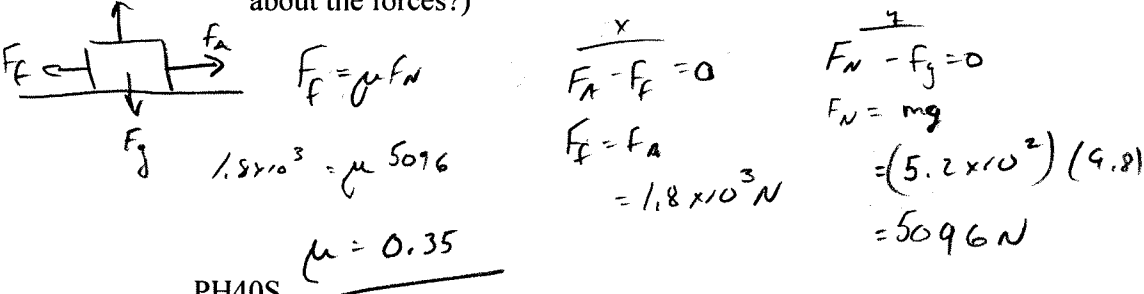 about the forces?)
F_f
F_A
F_g
F_f = μF_N
1.8x10³ = μ 5096
μ = 0.35
x
F_A - F_f = 0
F_f = F_A
= 1.8 x10³ N
y
F_N - F_g = 0
F_N = mg
= (5.2 x10²) (9.8)
= 5096 N
PH40S